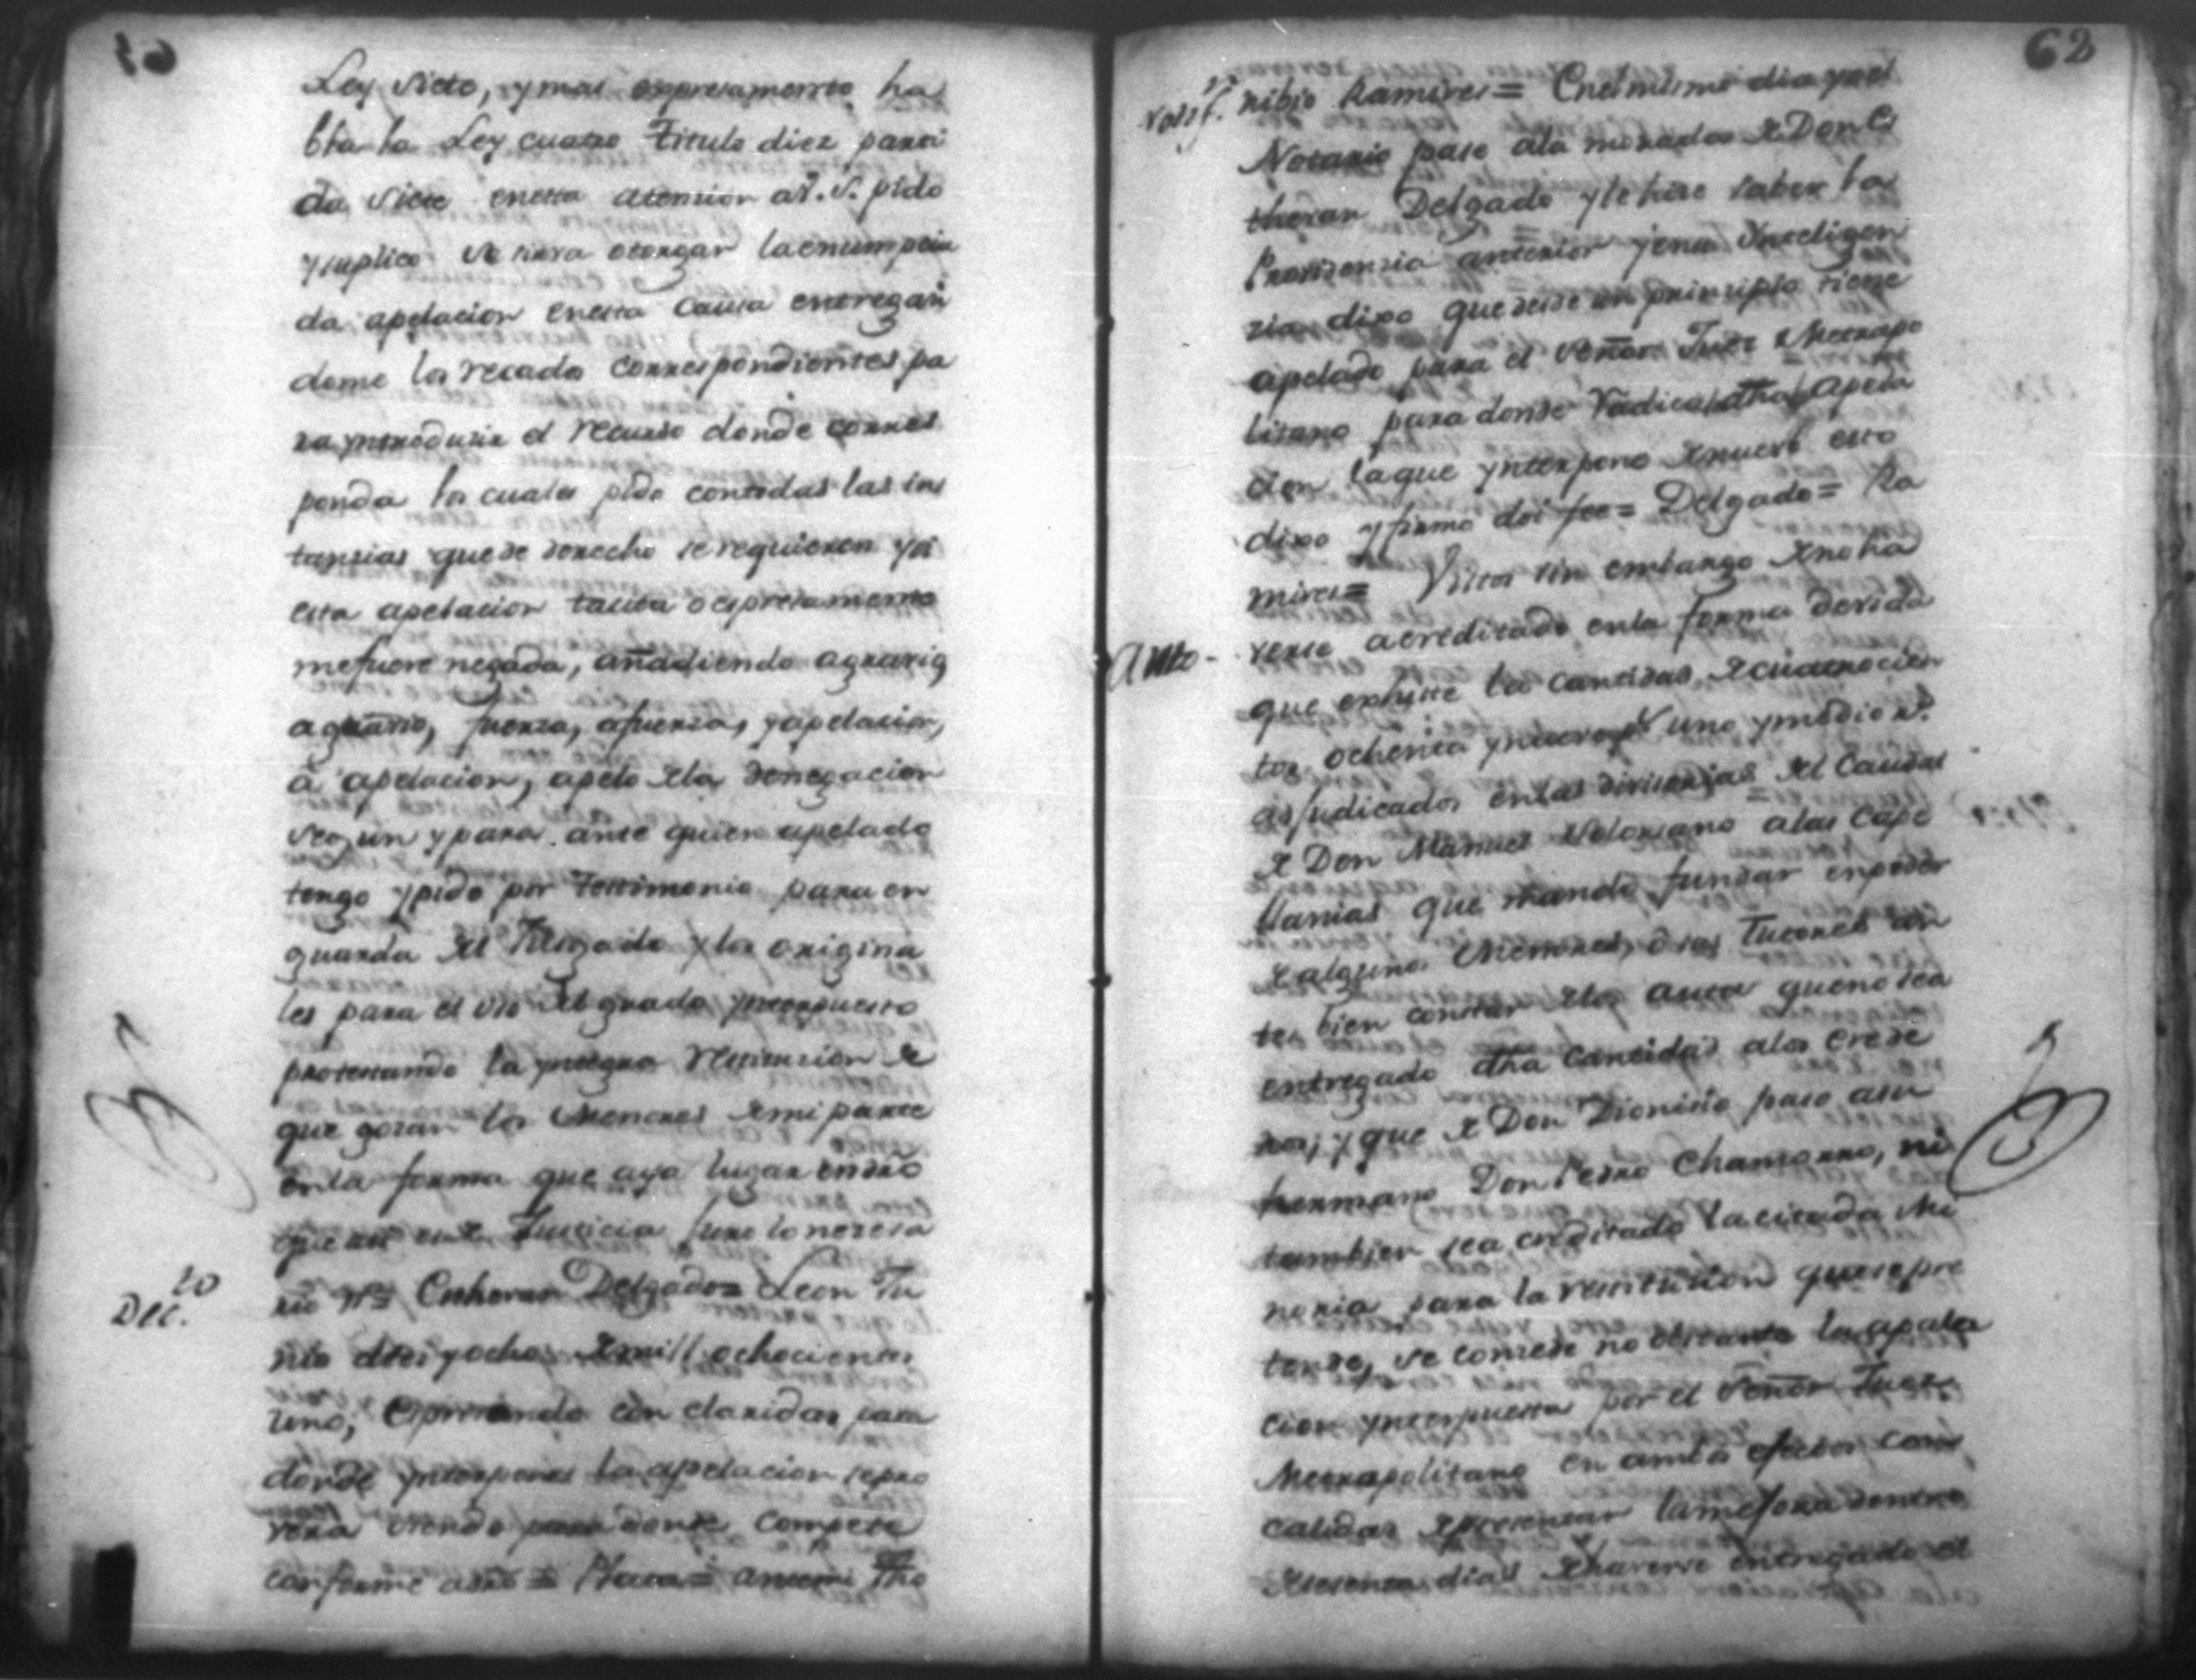 Ley Siete, y mas expresamente ha
bla la Ley cuatro Titulo diez parti
da siete enesta atension a V. S. pido
y suplico se sirva otorgar la enumpcia
da apelacion enesta causa entregan
dome los recados correspondientes pa
ra yntrodusir el recurso donde corres
ponda los cuales pido contodas las ins
tansias que de derecho se requieren y si
esta apelacion tasita o espresamente
me fuere negada, añadiendo agravio,
a agravio, fuerza, a fuerza, y apelacion,
â apelacion, apelo de la denegacion
segun y para ante quien apelado
tengo y pido por testimonio para en
guarda del Jusgado y los origina
les para el uso del grado ynterpuesto
protestando la yntegra restitusion de
que gozan los Menores de mi parte
en la forma que aya lugar en dro
que asi es de Justicia Juro lo nesesa
rio &ª= Estheran Delgado= Leon Ju
Dec.to
nio dies y ocho de mill ochocientos
uno, Espresando con claridad para
donde ynterpone la apelacion se pro
vera siendo para donde compete
conforme a dro = Plaza= ante mi Tho
62
Notif.n
ribio Ramires= En el mismo dia yo el
Notario pase a la morada de Don Es
theran Delgado y le hise saber la
Providensia anterior y en su Ynteligen
zia dixo que desde un prinsipio tiene
apelado para el Señor Juez Metrapo
litano para donde radica dha apela
cion la que ynterpone de nuevo esto
dixo y firmo doi fee= Delgado= Ra
mires= Vistos sin embargo de no ha
Auto-
verse acreditado en la forma devida
que existe la cantidad de cuatrocien
tos ochenta y nueve p.s uno y medio r.s
adjudicados en las divisorias del Caudal
de Don Manuel Solorsano a las Cape
llanias que mandó fundar en poder
de algunos Menores, ô sus Tutores an
tes bien constar de los autos que no sea
entregado dha Cantidad a los Erede
ros, y que de Don Dionisio paso a su
hermano Don Pedro Chamorro, ni
tambien sea creditado la citada Mi
noria para la restitusion que se pre
tende, se consede no obstante la apela
cion ynterpuesta por el Señor Juez
Metrapolitano en ambos efectos con
calidad de presentar la mejora dentro
de sesenta dias de haverse entregado el